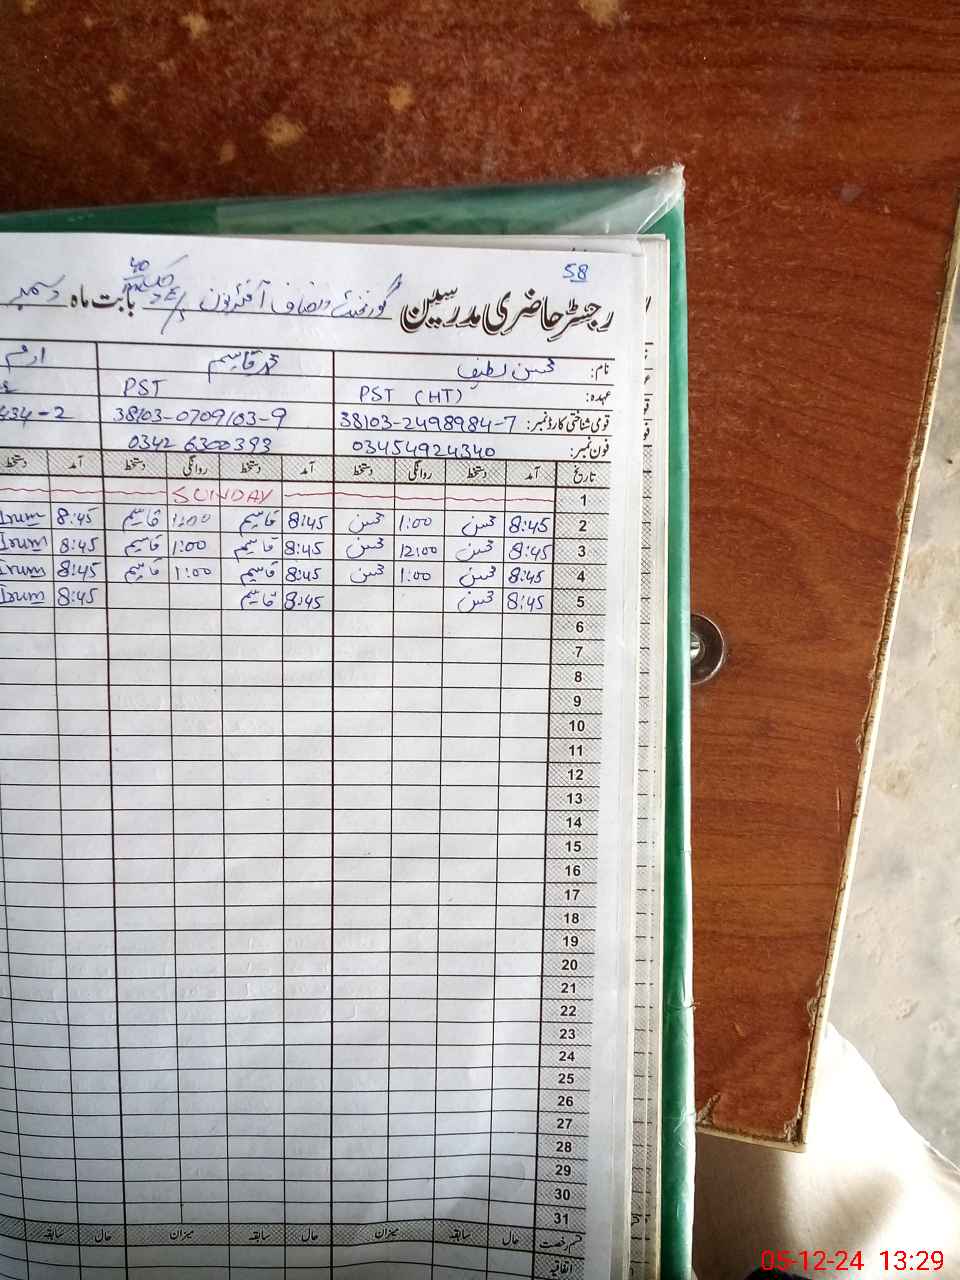 58
رجسٹر حاضری مدرسین گورنمنٹ انصاف آفٹرنون بابت ماہ دسمبر
نام: محسن لطیف محمد قاسم ارم
عہدہ: PST (HT) PST
قومی شناختی کارڈ نمبر: 38103-2498984-7 38103-0709103-9 434-2
فون نمبر: 03454924340 0342 6300393
تاریخ آمد دستخط روانگی دستخط آمد دستخط روانگی دستخط آمد دستخط
1 SUNDAY
2 8:45 محسن 1:00 محسن 8:45 قاسم 1:00 قاسم 8:45 Irum
3 8:45 محسن 12:00 محسن 8:45 قاسم 1:00 قاسم 8:45 Irum
4 8:45 محسن 1:00 محسن 8:45 قاسم 1:00 قاسم 8:45 Irum
5 8:45 محسن 8:45 قاسم 8:45 Irum
6
7
8
9
10
11
12
13
14
15
16
17
18
19
20
21
22
23
24
25
26
27
28
29
30
31
قسم رخصت حال سابقہ میزان حال سابقہ میزان حال سابقہ
اتفاقیہ
05-12-24 13:29